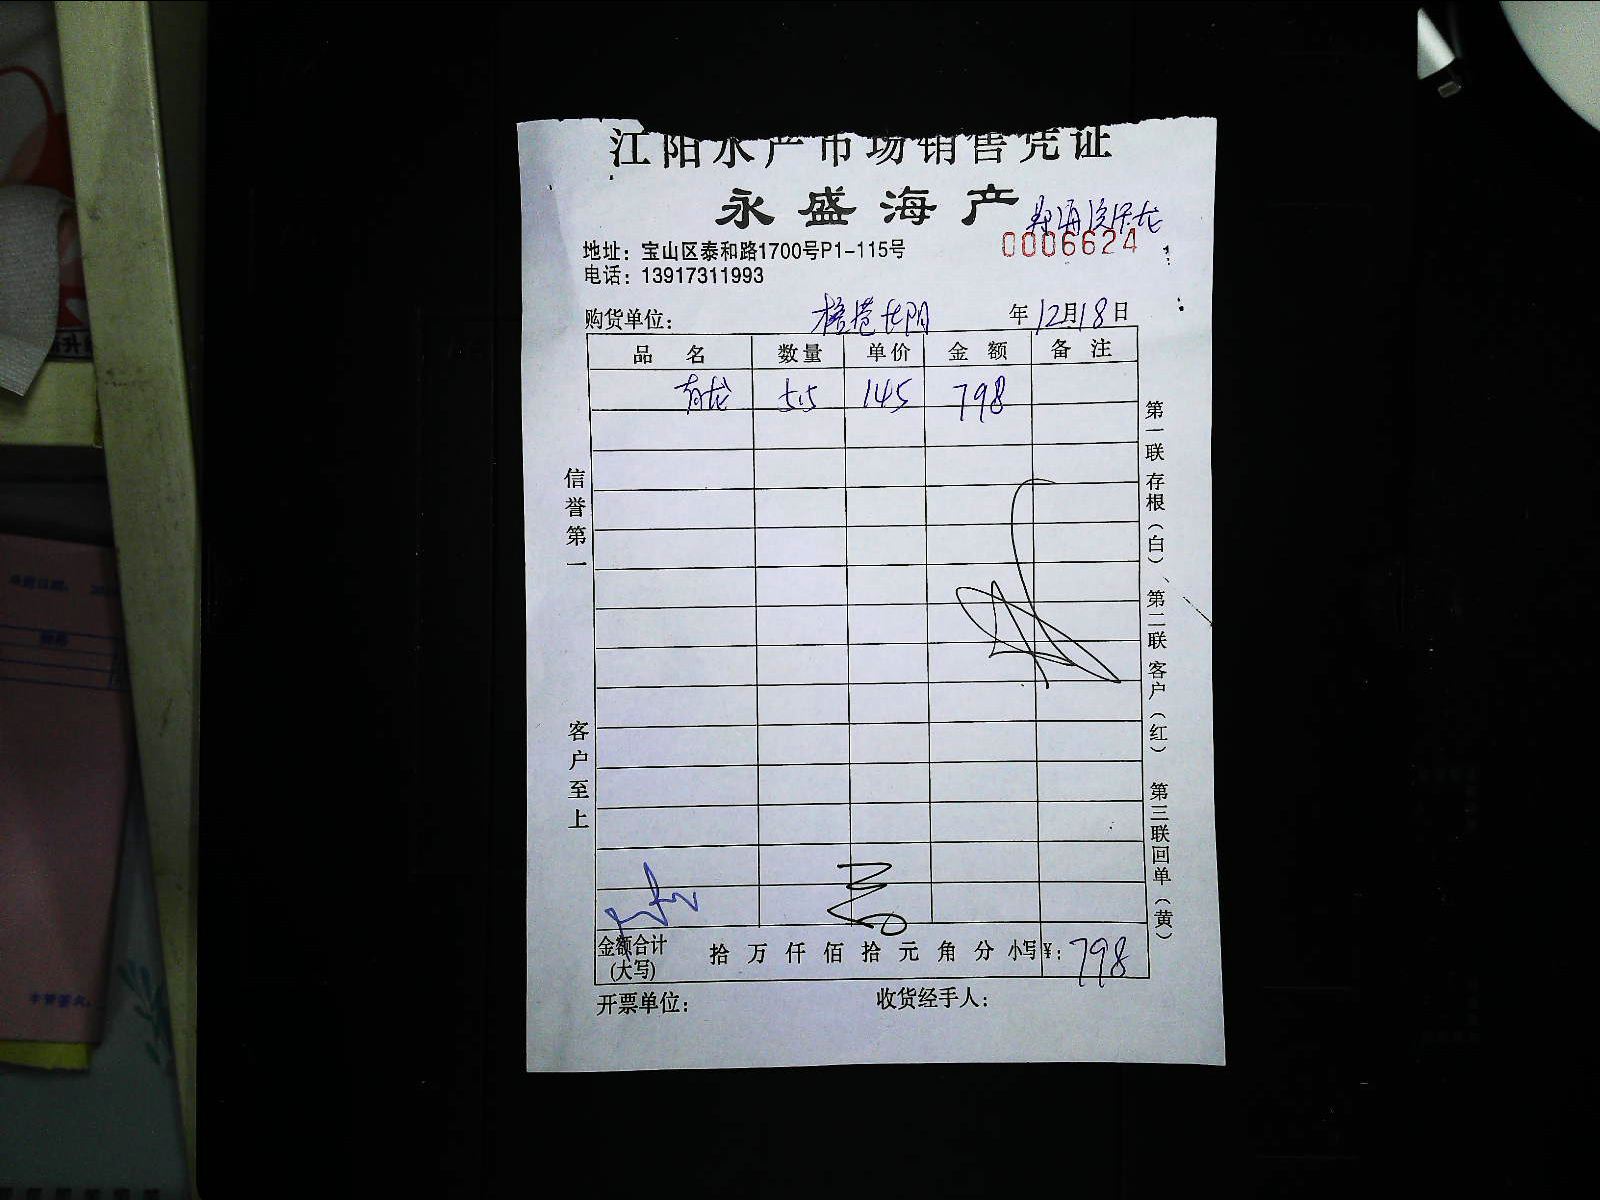 江阳水产市场销售凭证
永盛海产
0006624
地址：宝山区泰和路1700号P1-115号
电话：13917311993
购货单位： 年12月18日
品名 数量 单价 金额 备注
青龙 5.5 145 798
信誉第一
客户至上
第一联 存根（白）、第二联 客户（红） 第三联回单（黄）
金额合计(大写) 拾 万 仟 佰 拾 元 角 分 小写¥：798
开票单位： 收货经手人：